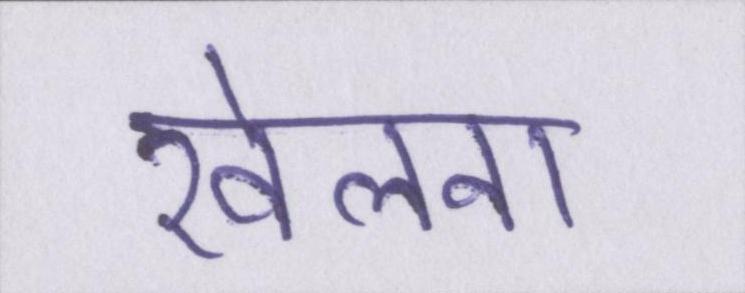 खेलना